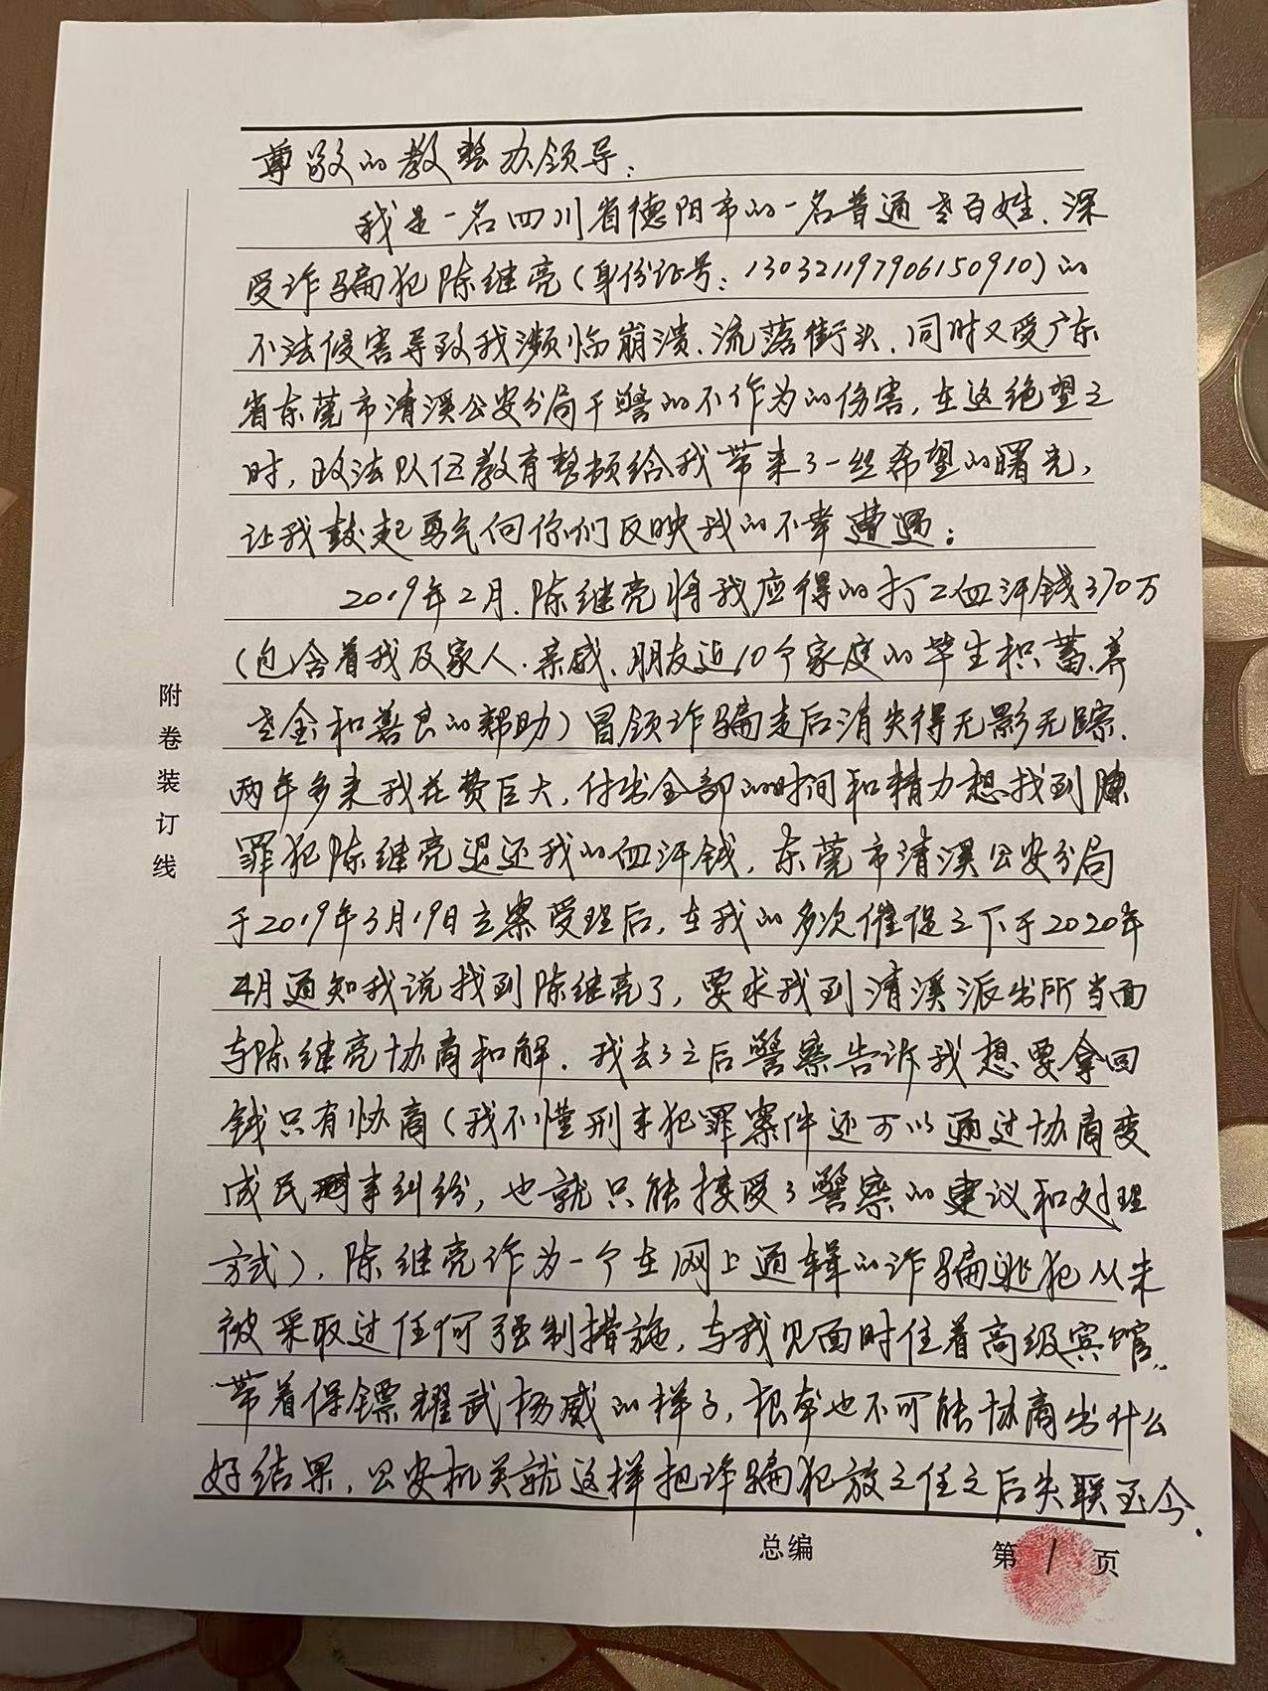 尊敬的教整办领导：
我是一名四川省德阳市的一名普通老百姓、深
受诈骗犯陈继亮（身份证号：130321197906150910）的
不法侵害导致我濒临崩溃、流落街头、同时又受广东
省东莞市清溪公安分局干警的不作为的伤害，在这绝望之
时，政法队伍教育整顿给我带来了一丝希望的曙光，
让我鼓起勇气向你们反映我的不幸遭遇：
2019年2月、陈继亮将我应得的打工血汗钱370万
（包含着我及家人、亲戚、朋友近10个家庭的毕生积蓄、养
老金和善良的帮助）冒领诈骗走后消失得无影无踪．
两年多来我花费巨大，付出全部的时间和精力想找到
罪犯陈继亮退还我的血汗钱，东莞市清溪公安分局
于2019年3月19日立案受理后，在我的多次催促之下于2020年
4月通知我说找到陈继亮了，要求我到清溪派出所当面
与陈继亮协商和解．我去了之后警察告诉我想要拿回
钱只有协商（我不懂刑事犯罪案件还可以通过协商变
成民事纠纷，也就只能接受了警察的建议和处理
方式），陈继亮作为一个在网上通辑的诈骗逃犯从未
被采取过任何强制措施，与我见面时住着高级宾馆、
带着保镖耀武杨威的样子，根本也不可能协商出什么
好结果，公安机关就这样把诈骗犯放之任之后失联至今．
附卷装订线
总编
第1页